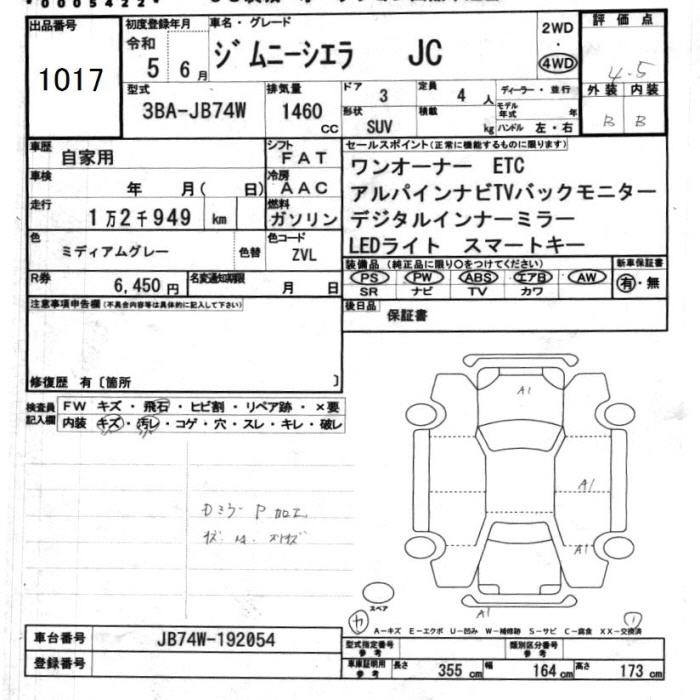 *0005422*
出品番号
1017
初度登録年月
令和
5 6月
車名・グレード
ジムニーシエラ JC
2WD
・
4WD
評価点
4.5
外装 内装
B B
型式
3BA-JB74W
排気量
1460 cc
ドア 3
定員 4 人
形状 SUV
積載 kg
ディーラー・並行
モデル年式 年
ハンドル 左・右
車歴
自家用
シフト
FAT
車検
年 月( 日)
冷房
AAC
走行
1万2千949 km
燃料
ガソリン
色
ミディアムグレー
色替
色コード
ZVL
R券
6,450円
名変通知期限
月 日
セールスポイント(正常に機能するものに限ります)
ワンオーナー ETC
アルパインナビTVバックモニター
デジタルインナーミラー
LEDライト スマートキー
装備品(純正品に限り○をつけてください)
PS PW ABS エアB AW
SR ナビ TV カワ
新車保証書
有・無
後日品
保証書
注意事項申告欄(不具合内容等は具体的に記入して下さい)
修復歴 有〔箇所 〕
検査員
記入欄
FW キズ・飛石・ヒビ割・リペア跡・×要
内装 キズ・汚レ・コゲ・穴・スレ・キレ・破レ
A1
A1
A1
A1
スペア
A-キズ E-エクボ U-凹み W-補修跡 S-サビ C-腐食 XX-交換済
車台番号
JB74W-192054
登録番号
型式指定番号
参考
類別区分番号
参考
車庫証明用
参考
長さ 355 cm
幅 164 cm
高さ 173 cm